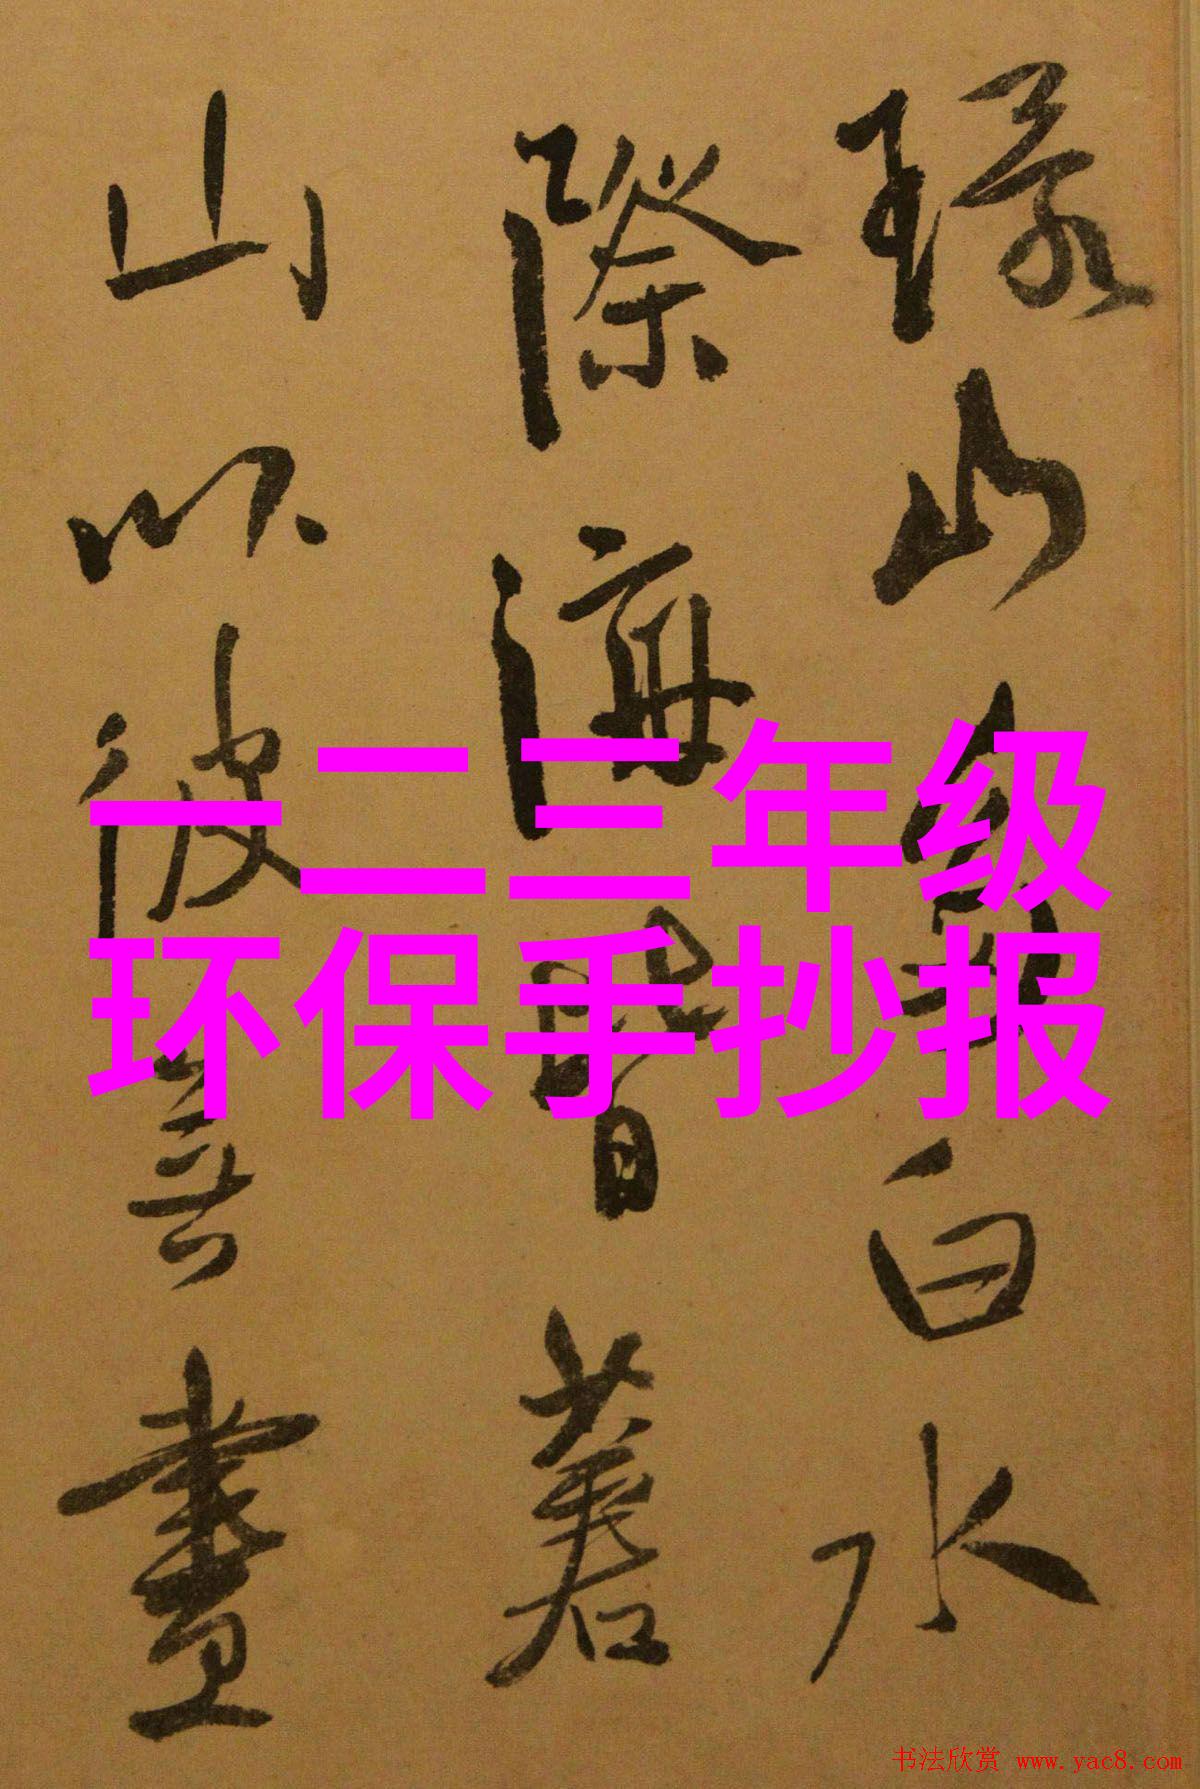 一二三年级
环保手抄报
環山白水
際海皆蒼
山以彼無盡
书法欣赏 www.yac8.com